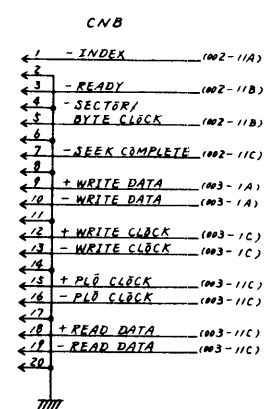 CNB
1 - INDEX (002-11A)
2
3 - READY (002-11B)
4 - SECTŌR/
5 BYTE CLŌCK (002-11B)
6
7 - SEEK CŌMPLETE (002-11C)
8
9 + WRITE DATA (003-1A)
10 - WRITE DATA (003-1A)
11
12 + WRITE CLŌCK (003-1C)
13 - WRITE CLŌCK (003-1C)
14
15 + PLŌ CLŌCK (003-11C)
16 - PLŌ CLŌCK (003-11C)
17
18 + READ DATA (003-11C)
19 - READ DATA (003-11C)
20